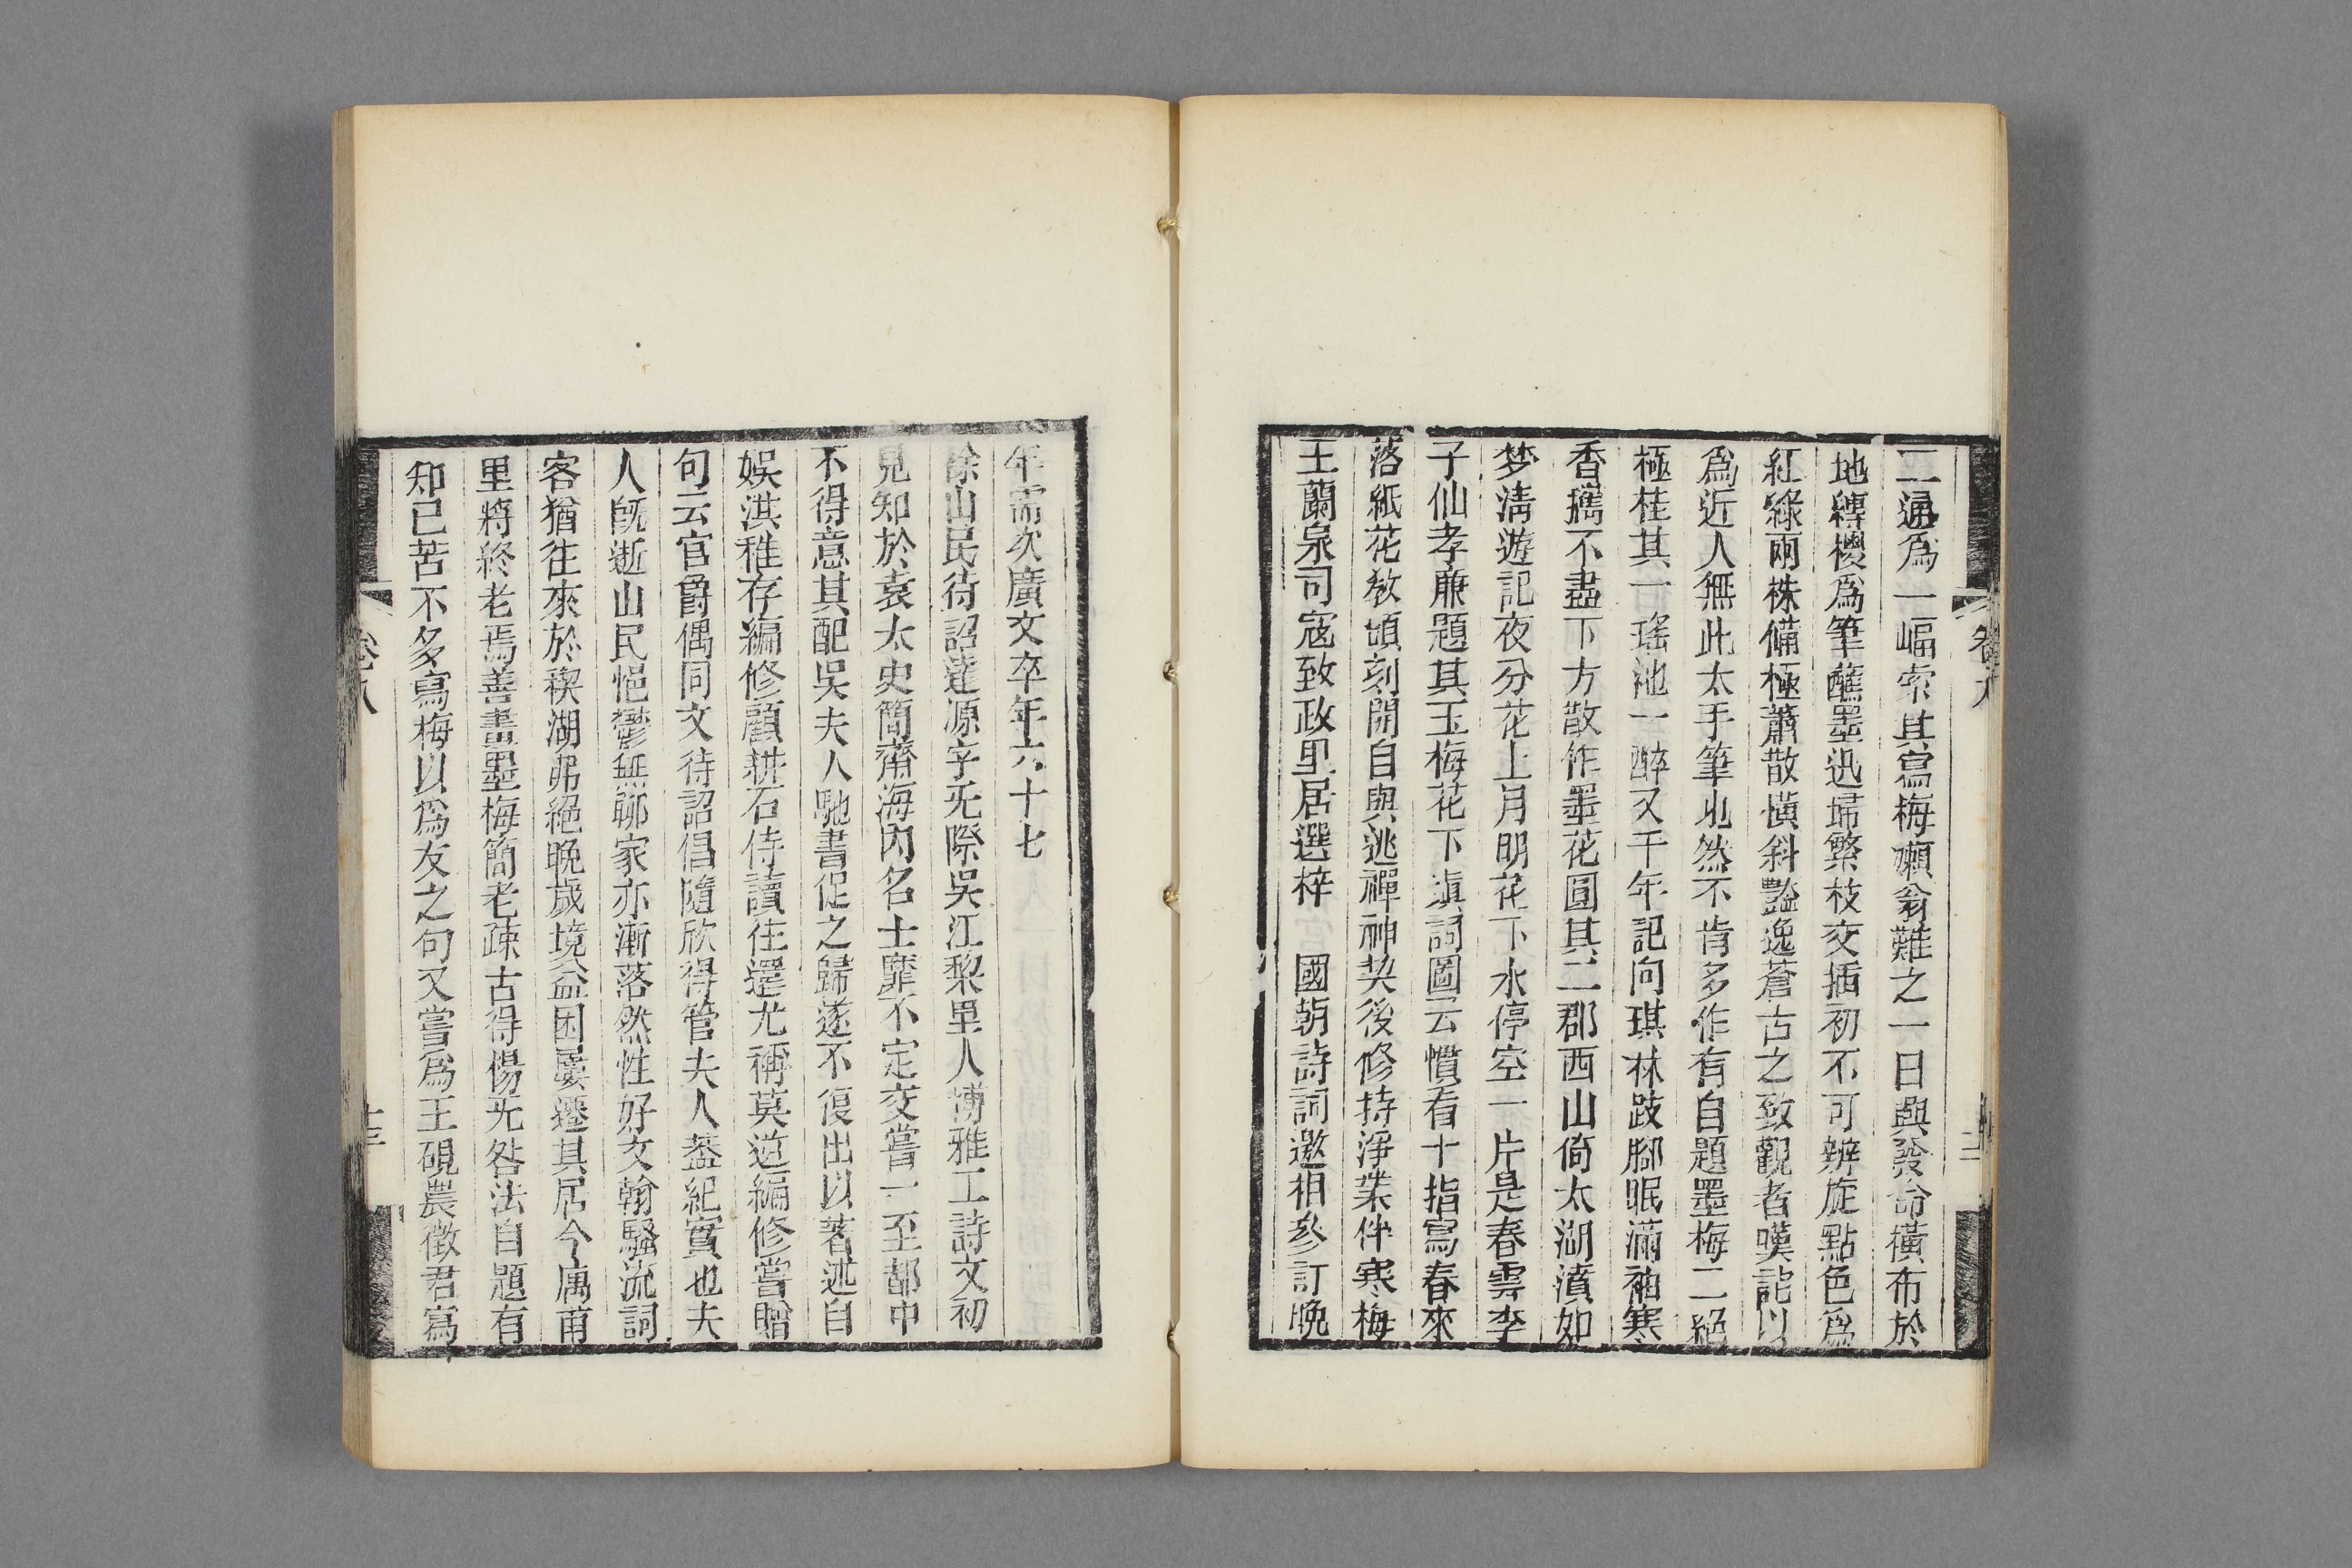 二通為一幅索其寫梅嬾翁難之一日興發命橫布於
地縛椶為筆蘸墨迅埽繁枝交插初不可辨旋點色為
紅綠兩株備極蕭散橫斜豔逸蒼古之致觀者嘆詫以
為近人無此太手筆也然不肯多作有自題墨梅二絕
極佳其一瑤池一醉又千年記向琪林跂腳眠滿袖寒
香攜不盡下方散作墨花圓其二郡西山倚太湖濆如
梦淸遊記夜分花上月明花下水停空一片是春雲李
子仙孝廉題其玉梅花下塡詞圖云慣看十指寫春來
落紙花教頃刻開自與逃禪神契後修持淨業伴寒梅
王蘭泉司寇致政里居選梓 國朝詩詞邀相參訂晚
卷八
年需次廣文卒年六十七
徐山民待詔達源字无際吳江黎里人博雅工詩文初
見知於袁太史簡齋海內名士靡不定交嘗一至都中
不得意其配吳夫人馳書促之歸遂不復出以著述自
娛淇稚存編修顧耕石侍讀往還尤稱莫逆編修嘗贈
句云官爵偶同文待詔倡隨欣得管夫人蓋紀實也夫
人旣逝山民悒鬱無聊家亦漸落然性好文翰騷流詞
客猶往來於稧湖弗絕晚歲境益困屢遷其居今寓甫
里將終老焉善畫墨梅簡老疎古得楊无咎法自題有
知己苦不多寫梅以為友之句又嘗為王硯農徵君寫
卷八
十三